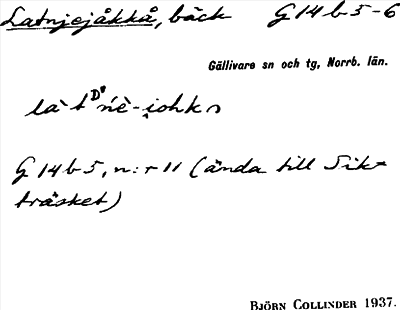 Latnjejåkkå, bäck G 14 b 5-6
Gällivare sn och tg, Norrb. län.
G 14 b 5, n:r 11 (ända till Sik-
träsket)
BJÖRN COLLINDER 1937.